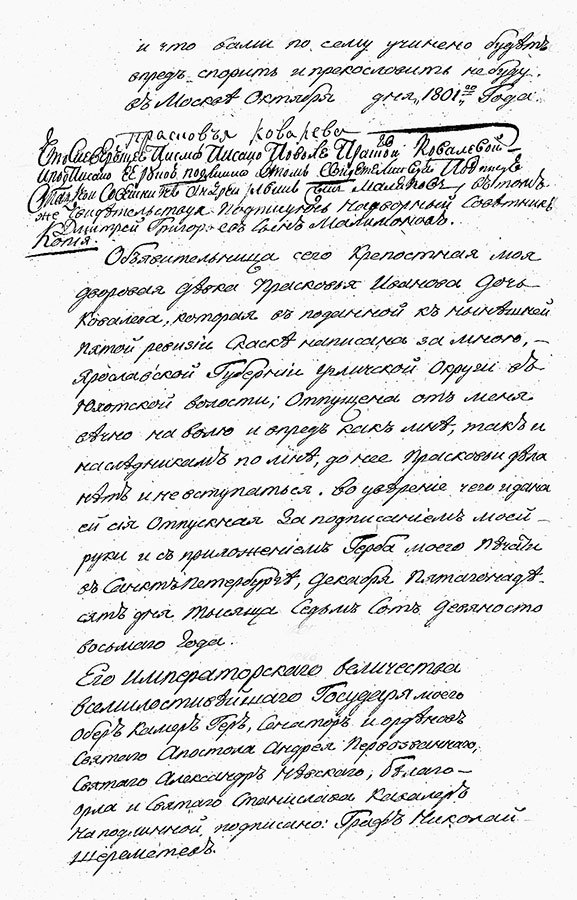 и что вами по сему учинено будетъ
впредь спорить и прекословить небуду.
въ Москвѣ Октября дня „1801„го Года
Прасковья Ковалева
Ето Писмо Писано Поволе Ковалевой
иподписано въ томъ
Андреи Малаховъ, вътомъ
же Свидѣтельствуя Подписуюсь Надворный Совѣтникъ
Дмитрей Григорьевъ сынъ Малимоновъ.
Копія.
Объявительница сего Крепостная моя
дворовая дѣвка Прасковья Иванова дочь
Ковалева, которая въ поданной къ нынѣшней
Пятой ревизіи Скаскѣ написана за мною, –
Ярославской Губерніи Угличской Округи въ
Юхотской волости; Отпущена отъ меня
вѣчно на волю и впредь какъ мнѣ, такъ и
наслѣдникамъ по мнѣ, до нее Прасковьи дѣла
нѣтъ и невступаться. Во увѣрение чего и дана
ей сія Отпускная За подписаніемъ моей –
руки и съ приложеніемъ Герба моего Печати
въ СанктъПетербургѣ, Декабря Пятагонадѣ-
сятъ дня Тысяща Седьмъ Сотъ девяносто
восьмаго Года.
Его императорского величества
всемилостивѣйшаго Государя моего
Оберъ Камер Геръ, Сенаторъ и орденовъ
Святаго Апостола Андрея Первозваннаго,
Святаго Александръ Невскаго, бѣлаго –
орла и Святаго Станислава Кавалеръ
На подлинной подписано: Графъ Николай
Шереметевъ.